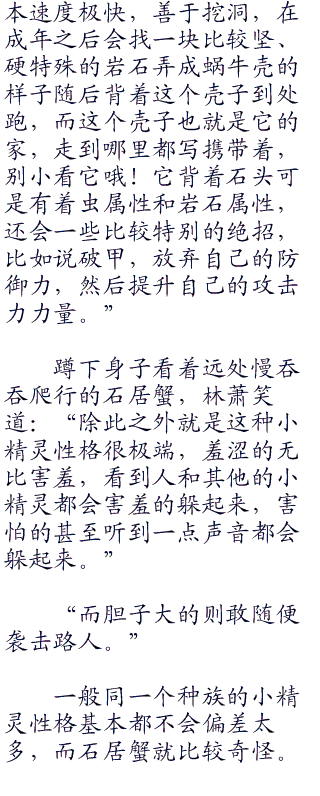 本速度极快，善于挖洞，在
成年之后会找一块比较坚、
硬特殊的岩石弄成蜗牛壳的
样子随后背着这个壳子到处
跑，而这个壳子也就是它的
家，走到哪里都写携带着，
别小看它哦！它背着石头可
是有着虫属性和岩石属性，
还会一些比较特别的绝招，
比如说破甲，放弃自己的防
御力，然后提升自己的攻击
力力量。”
蹲下身子看着远处慢吞
吞爬行的石居蟹，林萧笑
道：“除此之外就是这种小
精灵性格很极端，羞涩的无
比害羞，看到人和其他的小
精灵都会害羞的躲起来，害
怕的甚至听到一点声音都会
躲起来。”
“而胆子大的则敢随便
袭击路人。”
一般同一个种族的小精
灵性格基本都不会偏差太
多，而石居蟹就比较奇怪。